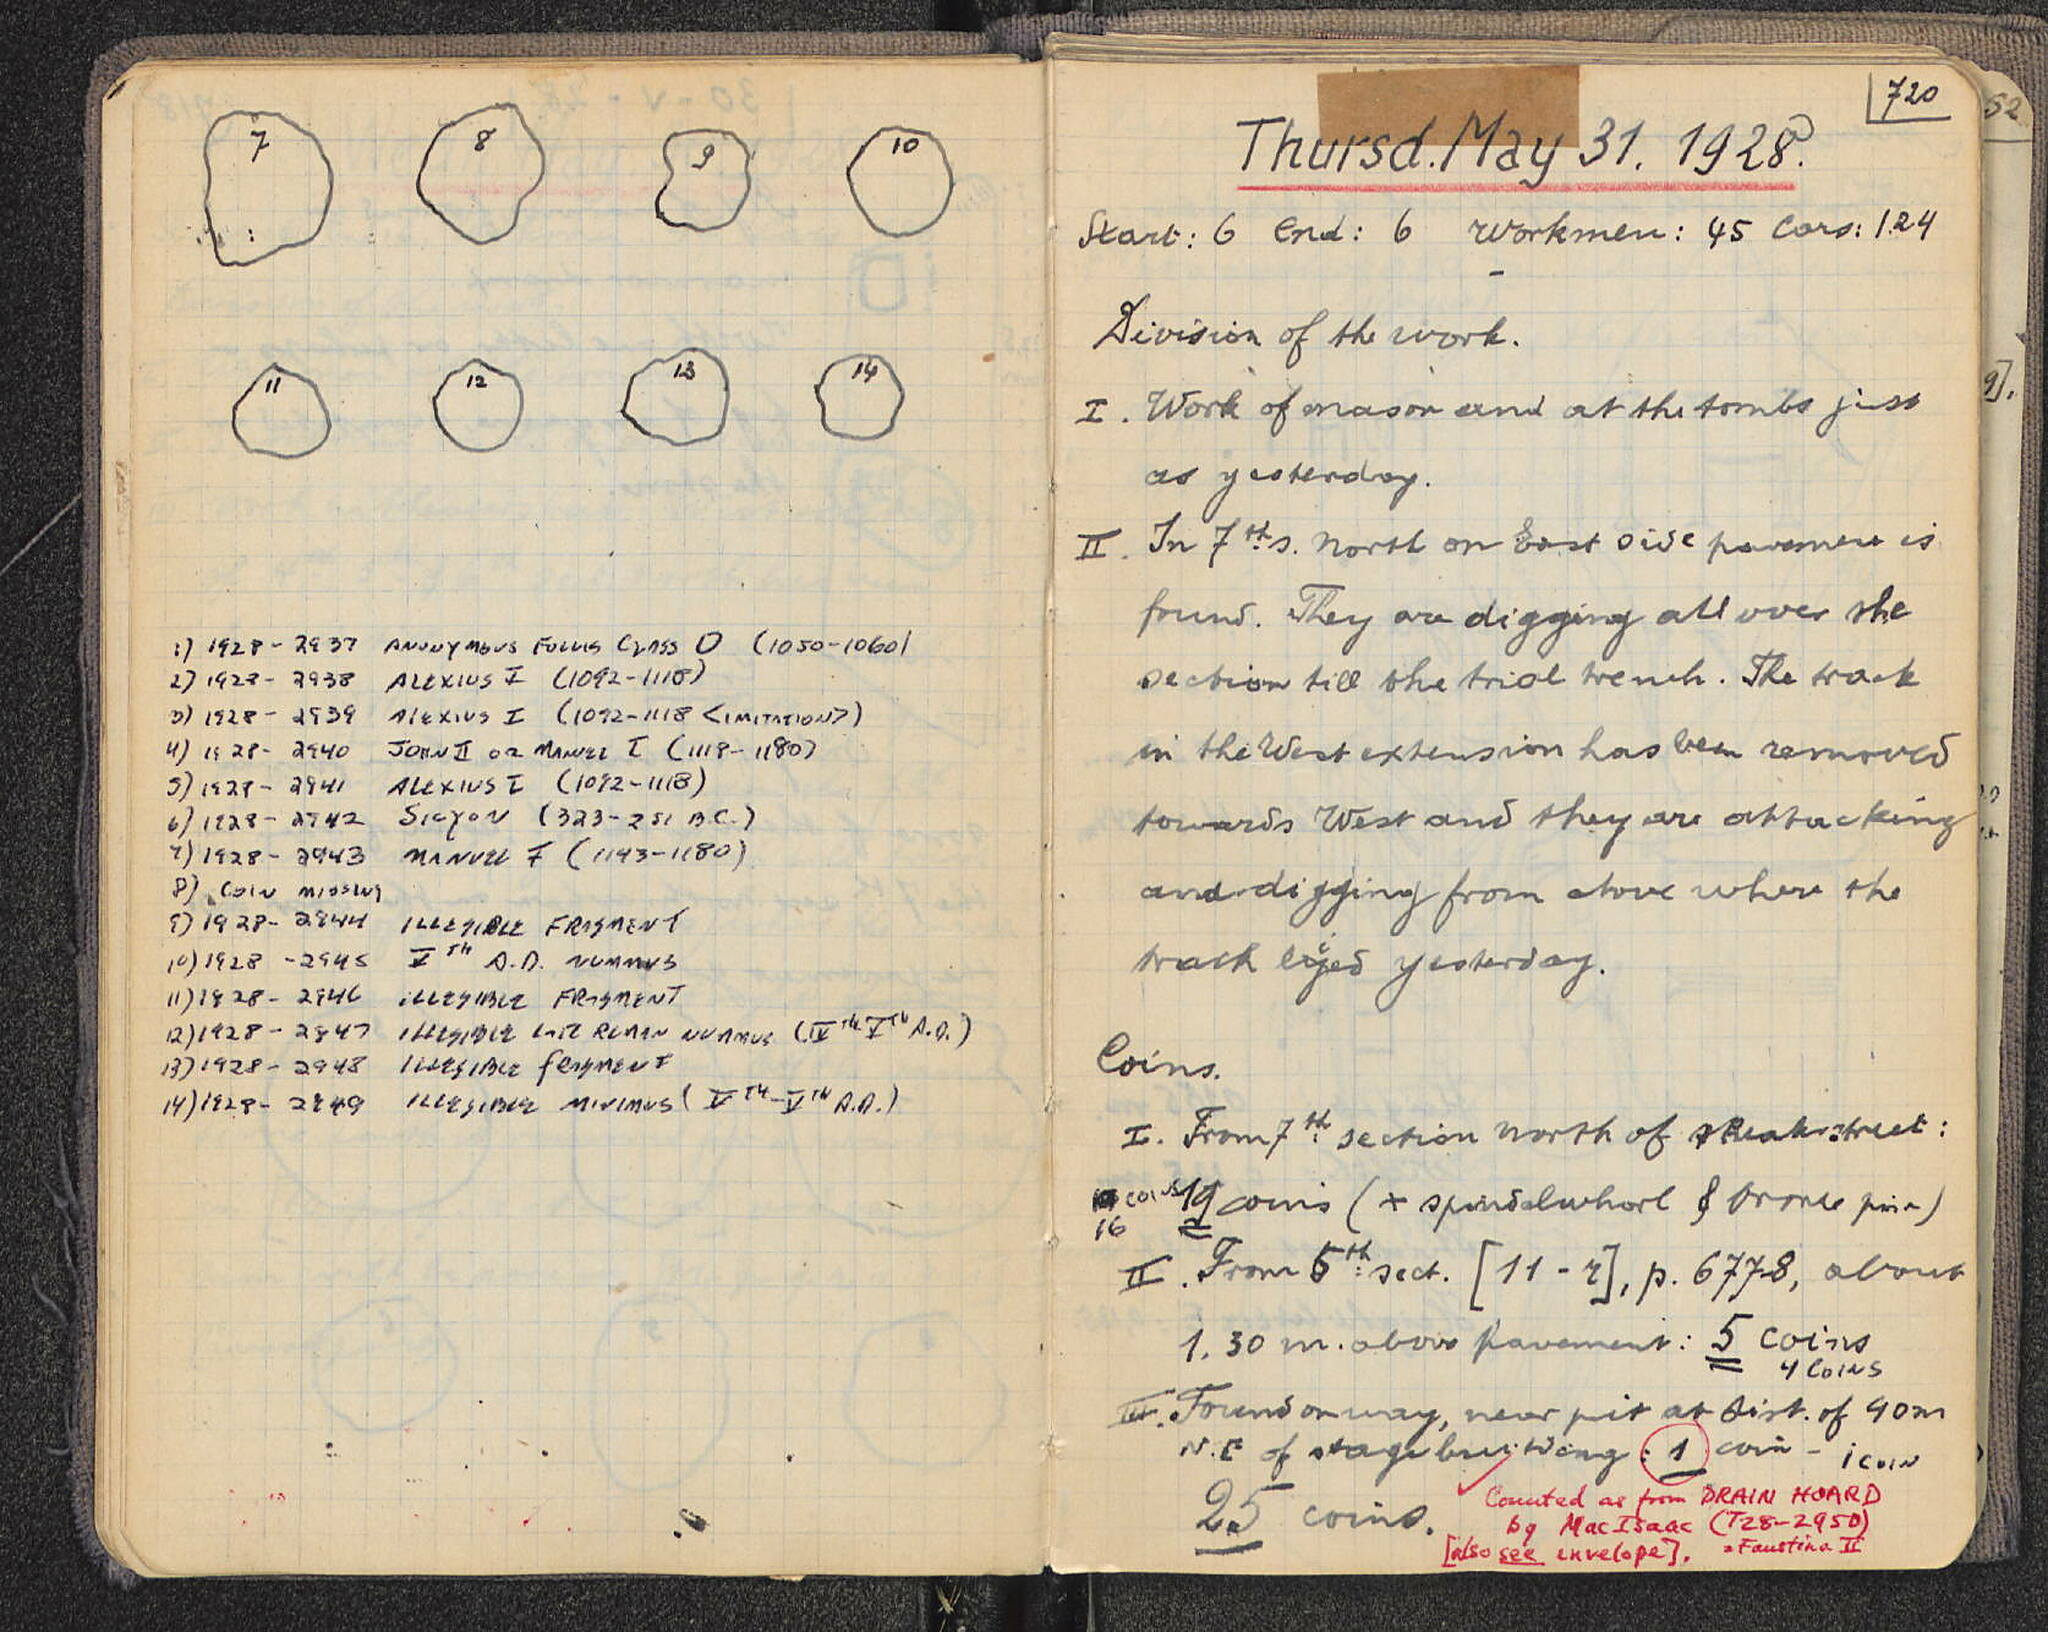 7
8
9
10
11
12
13
14
1) 1928 - 2937 ANONYMOUS FOLLIS CLASS D (1050-1060)
2) 1928 - 2938 ALEXIUS I (1092-1118)
3) 1928 - 2939 ALEXIUS I (1092-1118 <IMITATION>)
4) 1928 - 2940 JOHN II OR MANUEL I (1118-1180)
5) 1928 - 2941 ALEXIUS I (1092-1118)
6) 1928 - 2942 SICYON (323-251 B.C.)
7) 1928 - 2943 MANUEL I (1143-1180)
8) COIN MISSING
9) 1928 - 2944 ILLEGIBLE FRAGMENT
10) 1928 - 2945 V TH A.D. NUMMUS
11) 1928 - 2946 ILLEGIBLE FRAGMENT
12) 1928 - 2947 ILLEGIBLE LATE ROMAN NUMMUS (IV TH-V TH A.D.)
13) 1928 - 2948 ILLEGIBLE FRAGMENT
14) 1928 - 2949 ILLEGIBLE MINIMUS (V TH-V TH A.D.)
720
Thursd. May 31. 1928.
Start: 6 End: 6 Workmen: 45 Cars: 124
Division of the work.
I. Work of mason and at the tombs just
as yesterday.
II. In 7th s. north on East side pavement is
found. They are digging all over the
section till the trial trench. The track
in the West extension has been removed
towards West and they are attacking
and digging from above where the
track lyed yesterday.
Coins.
I. From 7th section north of theatr. street:
COINS 19 coins (+ spindelwhorl & bronze pin)
16
II. From 5th sect. [11-r], p. 677-8, about
1.30 m. above pavement: 5 coins
4 COINS
III. Found on way, near pit at dist. of 40 m
N.E of stagebuilding: 1 coin - 1 COIN
25 coins.
Counted as from DRAIN HOARD
by MacIsaac (T28-2950)
[also see envelope]. = Faustina II
52
9].